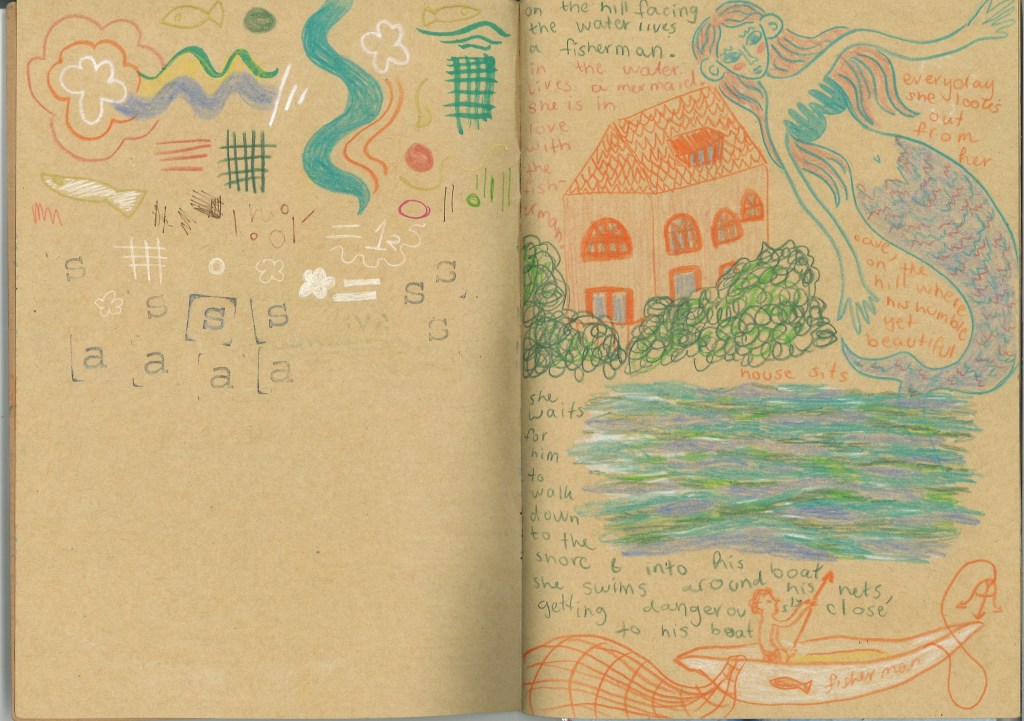 1
s
s
s
s
s
s
s
a
a
a
a
on the hill facing
the water lives
a fisherman.
in the water
lives a mermaid
she is in
love
with
the
fish-
erman.
everyday
she looks
out
from
her
cave, the
on
hill where
his humble
yet
beautiful
house sits
she
waits
for
him
to
walk
down
to the
shore & into his boat
she swims around his nets,
getting dangerously close
to his boat
fisherman